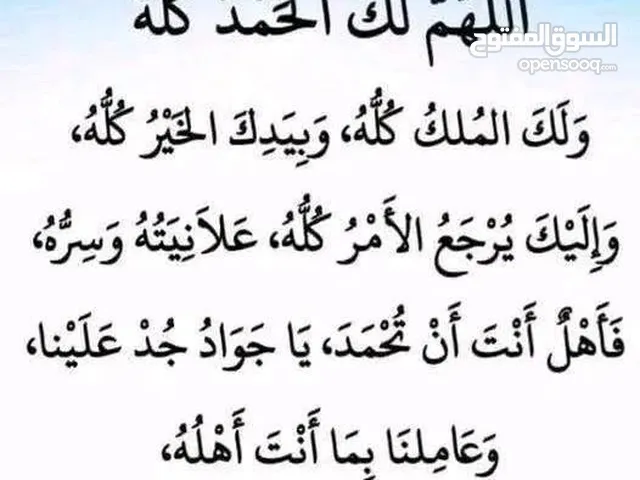 اللَّهُمَّ لَكَ الْحَمْدُ كُلُّهُ
السوق المفتوح
opensooq.com
وَلَكَ المُلكُ كُلُّهُ، وَبِيَدِكَ الخَيْرُ كُلُّهُ،
وَإِلَيْكَ يُرْجَعُ الأَمْرُ كُلُّهُ، عَلاَنِيَتُهُ وَسِرُّهُ،
فَأَهْلٌ أَنْتَ أَنْ تُحْمَدَ، يَا جَوَادُ جُدْ عَلَيْنا،
وَعَامِلنَا بِمَا أَنْتَ أَهْلُهُ،